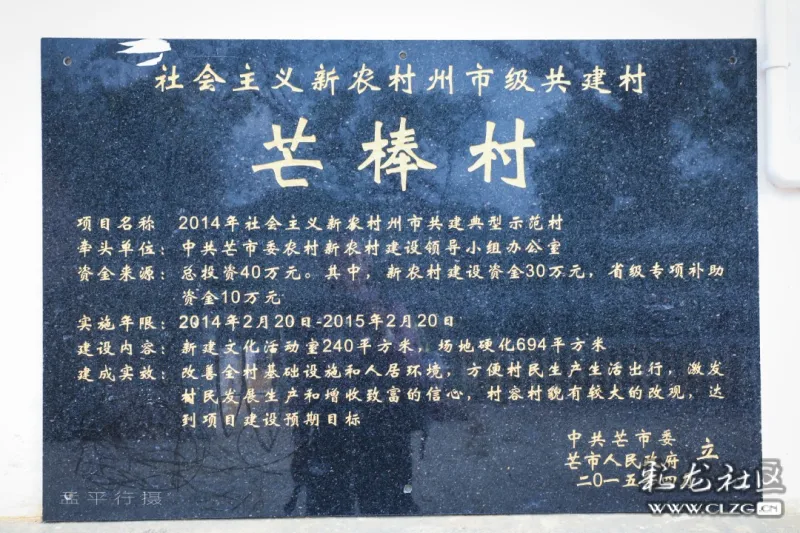 社会主义新农村州市级共建村
芒棒村
项目名称 2014年社会主义新农村州市共建典型示范村
牵头单位：中共芒市委农村新农村建设领导小组办公室
资金来源：总投资40万元。其中，新农村建设资金30万元，省级专项补助
资金10万元
实施年限：2014年2月20日-2015年2月20日
建设内容：新建文化活动室240平方米，场地硬化694平方米
建成实效：改善全村基础设施和人居环境，方便村民生产生活出行，激发
村民发展生产和增收致富的信心，村容村貌有较大的改观，达
到项目建设预期目标
中共芒市委
芒市人民政府 立
二〇一五年四月
孟平行摄
龙社区
WWW.CLZG.CN